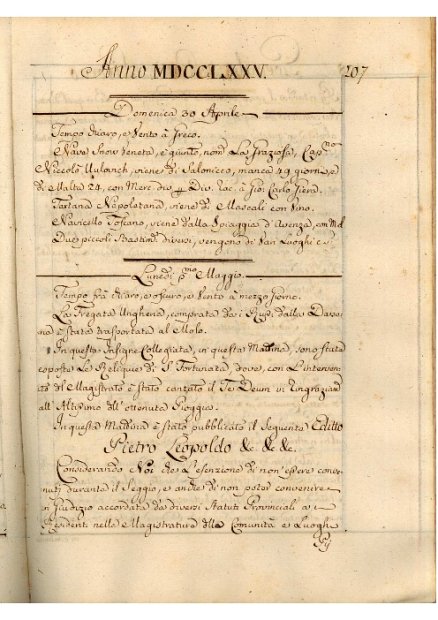 Anno MDCCLXXV. 207
Domenica 30 Aprile
Tempo chiaro, e Vento à Greco.
Nave Snow Veneta, è giunto, nom.ª La Graziosa, Cap.no
Niccolò viene di Salonicco, manca 49 giorni, e
di Malta 24, con Merc. div. p Div. Rac. à Gio: Carlo
Tartana Napoletana, viene di Mascali con Vino.
Navicello Toscano, viene dalla Spiaggia d'Avenza, con
Due piccoli Bastim.ti diversi, vengono di Vari Luoghi
Lunedì p.mo Maggio.
Tempo frà chiaro, e oscuro, e Vento à mezzo giorno.
La Fregata Ungheria, comprata da i dalla Darse-
na è stata trasportata al Molo.
In questa Insigne Collegiata, in questa Mattina, sono state
esposte le Reliquie di S. Fortunata, dove, con L'interven-
to del Magistrato è stato cantato il Te Deum in ringraziam.
all'Altissimo dell'ottenuta Pioggia.
In questa Mattina è stato pubblicato il Seguente Editto
Pietro Leopoldo &c. &c. &c.
Considerando Noi che L'esenzione di non essere conve-
nuti durante il Seggio, e anche di non poter convenire
in Giudizio accordata da diversi Statuti Provinciali a
Residenti nelle Magistrature delle Comunità e Luoghi